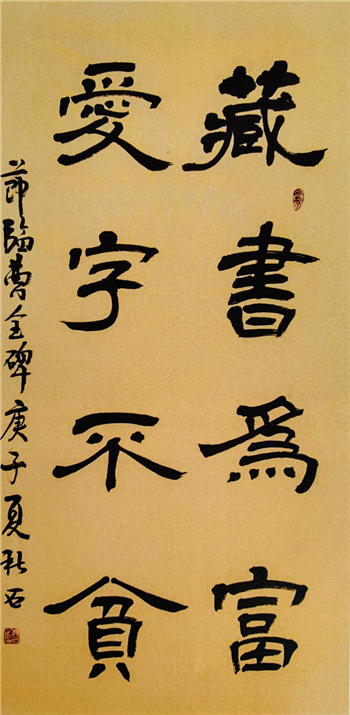 藏書為富
愛字不貧
節臨曹全碑庚子夏秋石